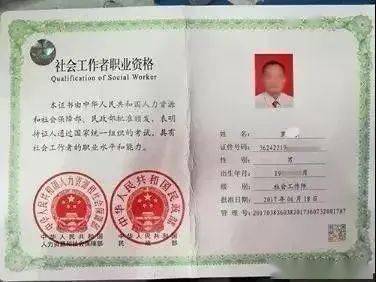 社会工作者职业资格
Qualification of Social Worker
本证书由中华人民共和国人力资源
和社会保障部、民政部批准颁发，表明
持证人通过国家统一组织的考试，具有
社会工作者的职业水平和能力。
中华人民共和国人力资源和社会保障部
中华人民共和国民政部
中华人民共和国
人力资源和社会保障部
中华人民共和国
民政部
姓名：
证件号码：36242219
性别：男
出生年月：19 月
级别：社会工作师
批准日期：2017年06月18日
管理号：